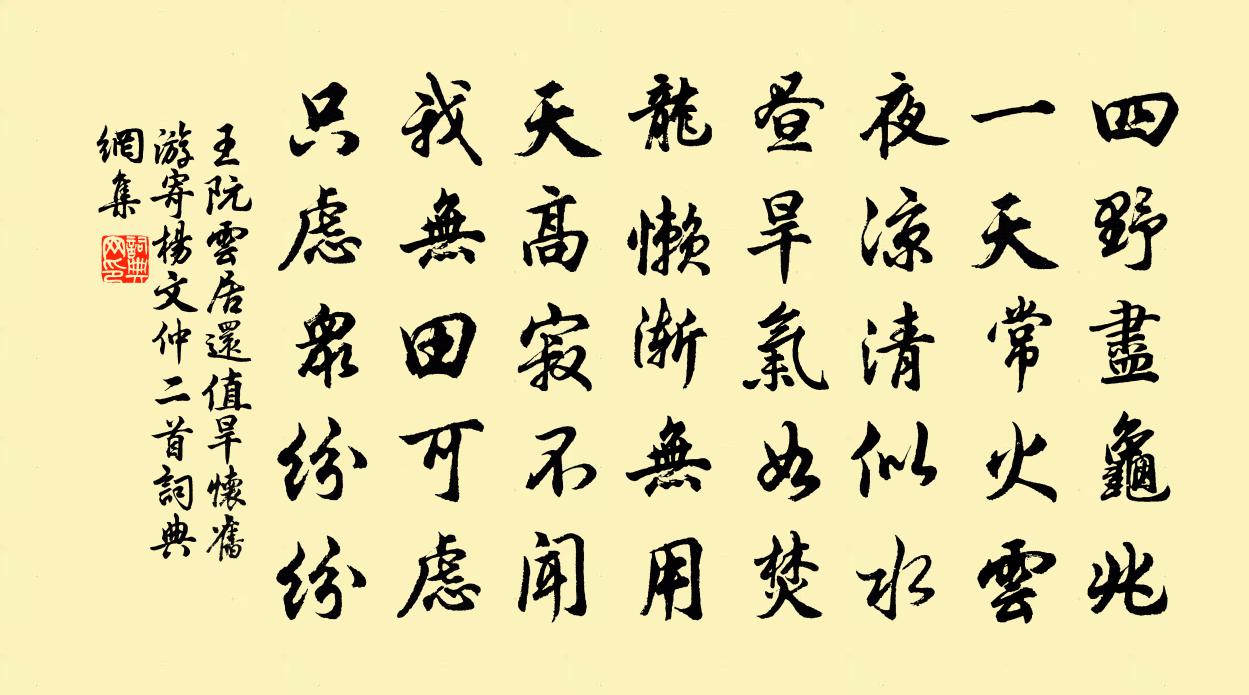 四野盡龜兆
一天常火雲
夜涼清似水
晝旱氣如焚
龍懶漸無用
天高寂不聞
我無田可慮
只慮眾紛紛
王阮雲居還值旱懷舊
游寄楊文仲二首詞典
網集
詞典
网印